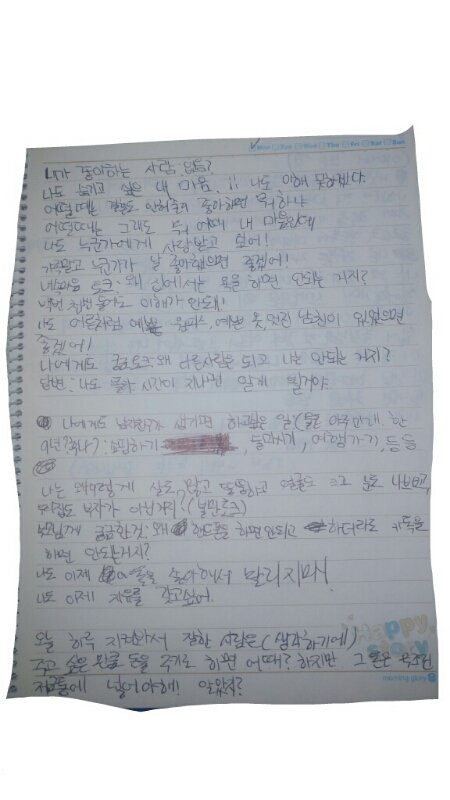 Mon Tue Wed Thu Fri Sat Sun
내가 좋아하는 사람 있음?
나도 숨기고 싶은 내 마음. !! 나도 이해 못하겠다
어떨때는 안해주지 좋아하면 뭐하냐
어떨때는 그래도 뭐 어때 내 마음인데
나도 누군가에게 사랑받고 싶어!
가족말고 누군가가 날 좋아했으면 좋겠어!
왜 집에서는 욕을 하면 안되는 거지?
백번 천번 들어도 이해가 안돼!
나도 어른처럼 예쁜 원피스, 예쁜 옷 멋진 남친이 있었으면
좋겠어!
나에게도 궁금 왜 다른사람은 되고 나는 안되는 거지?
답변: 나도 시간이 지나면 알게 될거야
나에게도 남자친구가 생기면 하고싶은 일 (물론 아주만약에. 한
쇼핑하기, 여행가기, 등등
나는 왜이렇게 살도 많고 뚱뚱하고 얼굴도 눈도 나쁘고,
부자가 아닌거지?
부모님께 궁금한것: 왜 핸드폰을 하면 안되고 하더라도 카톡을
하면 안되는거지?
나도 이제 좋아해서 말리지마.
나도 이제 자유를 갖고싶어.
오늘 하루 지켜봐서 잘한 사람은 (생각하기에)
주고 싶은 만큼 돈을 주기로 하면 어때? 하지만 그 돈은
저금통에 넣어야해! 알았지?
Happy Story
morning glory